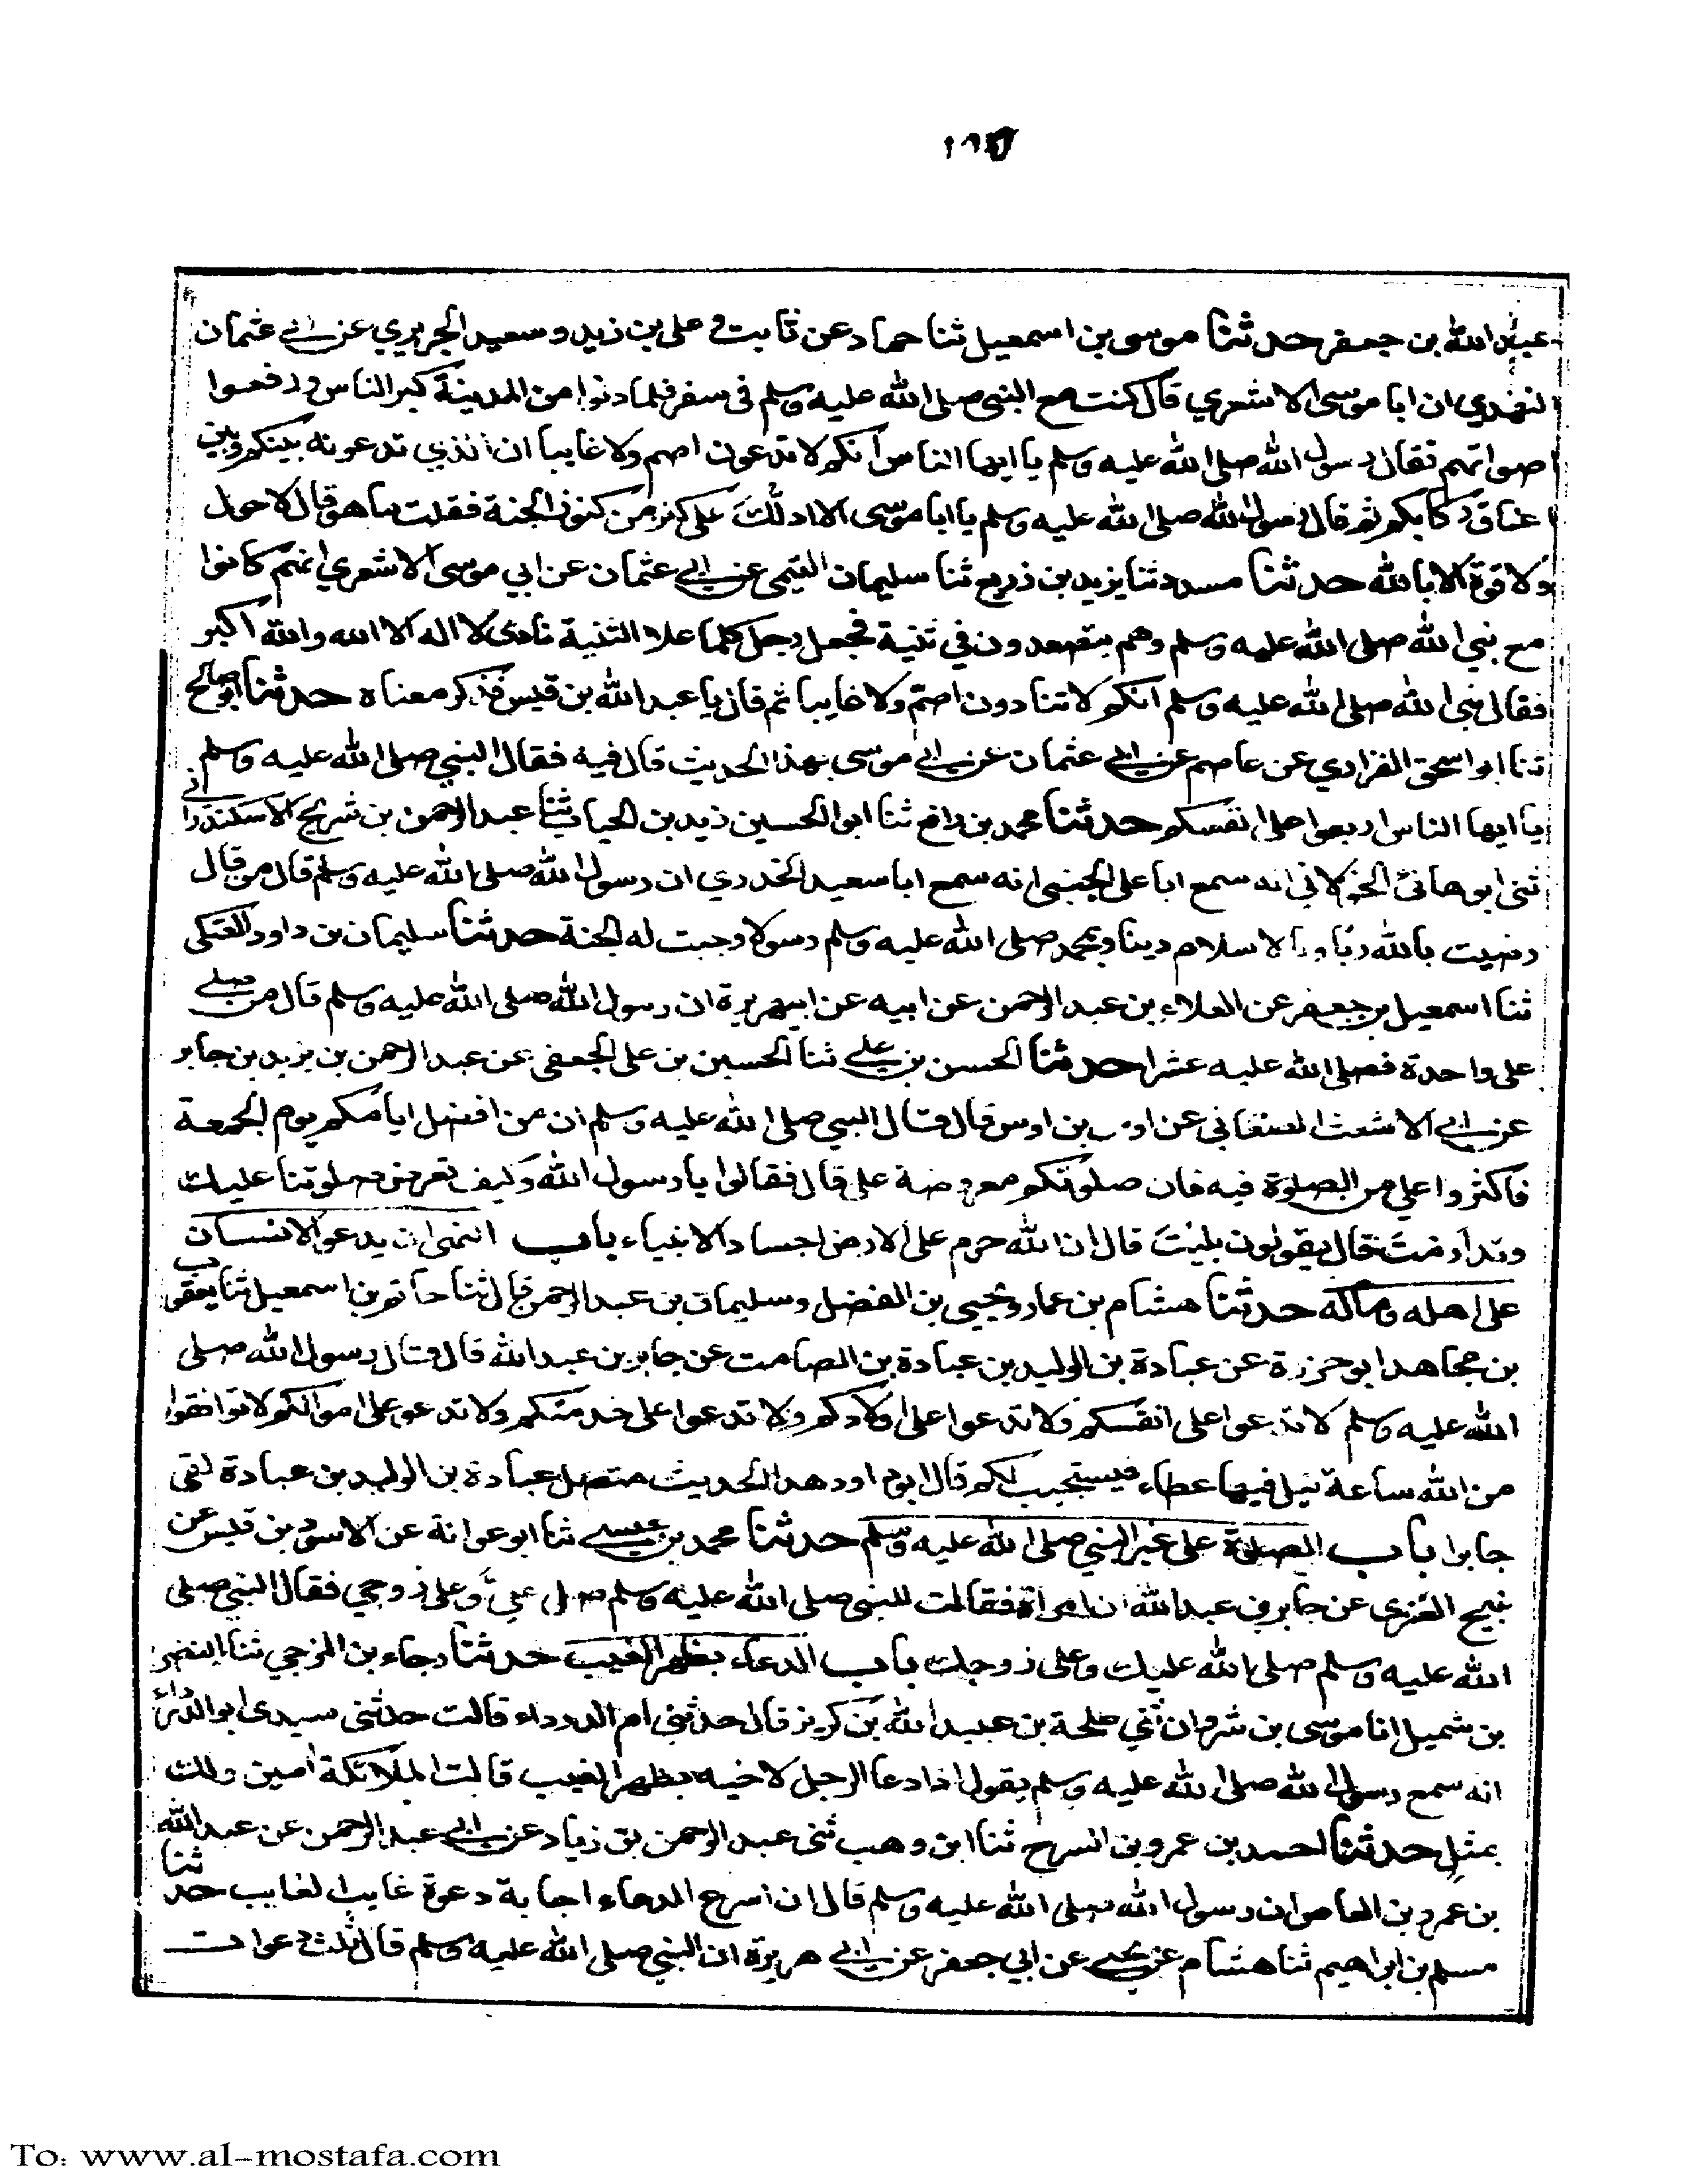 عبد الله بن جعفر حدثنا موسى بن اسمعيل ثنا حماد عن ثابت و على بن زيد و سعيد الجريري عن ابي عثمان
النهدي ان ابا موسى الاشعري قال كنت مع النبي صلى الله عليه وسلم في سفر فلما دنوا من المدينة كبر الناس و رفعوا
اصواتهم فقال رسول الله صلى الله عليه وسلم يا ايها الناس انكم لا تدعون اصم ولا غايبا ان الذي تدعونه بينكم وبين
اعناق ركابكم ثم قال رسول الله صلى الله عليه وسلم يا ابا موسى الا ادلك على كنز من كنوز الجنة فقلت ما هو قال لا حول
ولا قوة الا بالله حدثنا مسدد ثنا يزيد بن زريع ثنا سليمان التيمي عن ابي عثمان عن ابي موسى الاشعري انهم كانوا
مع نبي الله صلى الله عليه وسلم وهم يتصعدون في ثنية فجعل رجل كلما علا الثنية نادى لا اله الا الله والله اكبر
فقال نبي الله صلى الله عليه وسلم انكم لا تنادون اصم ولا غايبا ثم قال يا عبد الله بن قيس فذكر معناه حدثنا ابو صالح
ثنا ابو اسحق الفزاري عن عاصم عن ابي عثمان عن ابي موسى بهذا الحديث قال فيه فقال النبي صلى الله عليه وسلم
يا ايها الناس اربعوا على انفسكم حدثنا محمد بن رافع ثنا ابو الحسين زيد بن الحباب ثنا عبد الرحمن بن شريح الاسكندراني
ثني ابو هانئ الخولاني انه سمع ابا على الجنبي انه سمع ابا سعيد الخدري ان رسول الله صلى الله عليه وسلم قال من قال
رضيت بالله ربا وبالاسلام دينا وبمحمد صلى الله عليه وسلم رسولا وجبت له الجنة حدثنا سليمان بن داود العتكي
ثنا اسمعيل بن جعفر عن العلاء بن عبد الرحمن عن ابيه عن ابي هريرة ان رسول الله صلى الله عليه وسلم قال من صلى
على واحدة فصلى الله عليه عشرا حدثنا الحسن بن علي ثنا الحسين بن على الجعفي عن عبد الرحمن بن يزيد بن جابر
عن ابي الاشعث الصنعاني عن اوس بن اوس قال قال النبي صلى الله عليه وسلم ان من افضل ايامكم يوم الجمعة
فاكثروا علي من الصلوة فيه فان صلوتكم معروضة علي قال فقالوا يا رسول الله وكيف تعرض صلوتنا عليك
وقد ارمت قال يقولون بليت قال ان الله حرم على الارض اجساد الانبياء باب النهي ان يدعو الانسان
على اهله وماله حدثنا هشام بن عمار ويحيى بن الفضل وسليمان بن عبد الرحمن قال ثنا حاتم بن اسمعيل ثنا يعقوب
بن مجاهد ابو حزرة عن عبادة بن الوليد بن عبادة بن الصامت عن جابر بن عبد الله قال قال رسول الله صلى
الله عليه وسلم لا تدعوا على انفسكم ولا تدعوا على اولادكم ولا تدعوا على خدمتكم ولا تدعو على اموالكم لا توافقوا
من الله ساعة نيل فيها عطاء فيستجيب لكم قال ابو داود هذا الحديث متصل عبادة بن الوليد بن عبادة لقى
جابرا باب الصلوة على غير النبي صلى الله عليه وسلم حدثنا محمد بن عيسى ثنا ابو عوانة عن الاسود بن قيس عن
نبيح العنزي عن جابر بن عبد الله ان امراة فقالت للنبي صلى الله عليه وسلم صل علي وعلى زوجي فقال النبي صلى
الله عليه وسلم صلى الله عليك وعلى زوجك باب الدعاء بظهر الغيب حدثنا رجاء بن المرجي ثنا النضر
بن شميل انا موسى بن ثروان ثني طلحة بن عبيد الله بن كريز قال حدثتني ام الدرداء قالت حدثني سيدي ابو الدرداء
انه سمع رسول الله صلى الله عليه وسلم يقول اذا دعا الرجل لاخيه بظهر الغيب قالت الملائكة امين ولك
بمثل حدثنا احمد بن عمرو بن السرح ثنا ابن وهب ثني عبد الرحمن بن زياد عن ابي عبد الرحمن عن عبد الله
بن عمرو بن العاص ان رسول الله صلى الله عليه وسلم قال ان اسرع الدعاء اجابة دعوة غايب لغايب حدثنا
مسلم بن ابراهيم ثنا هشام عن يحيى عن ابي جعفر عن ابي هريرة ان النبي صلى الله عليه وسلم قال ثلث دعوات
To: www.al-mostafa.com